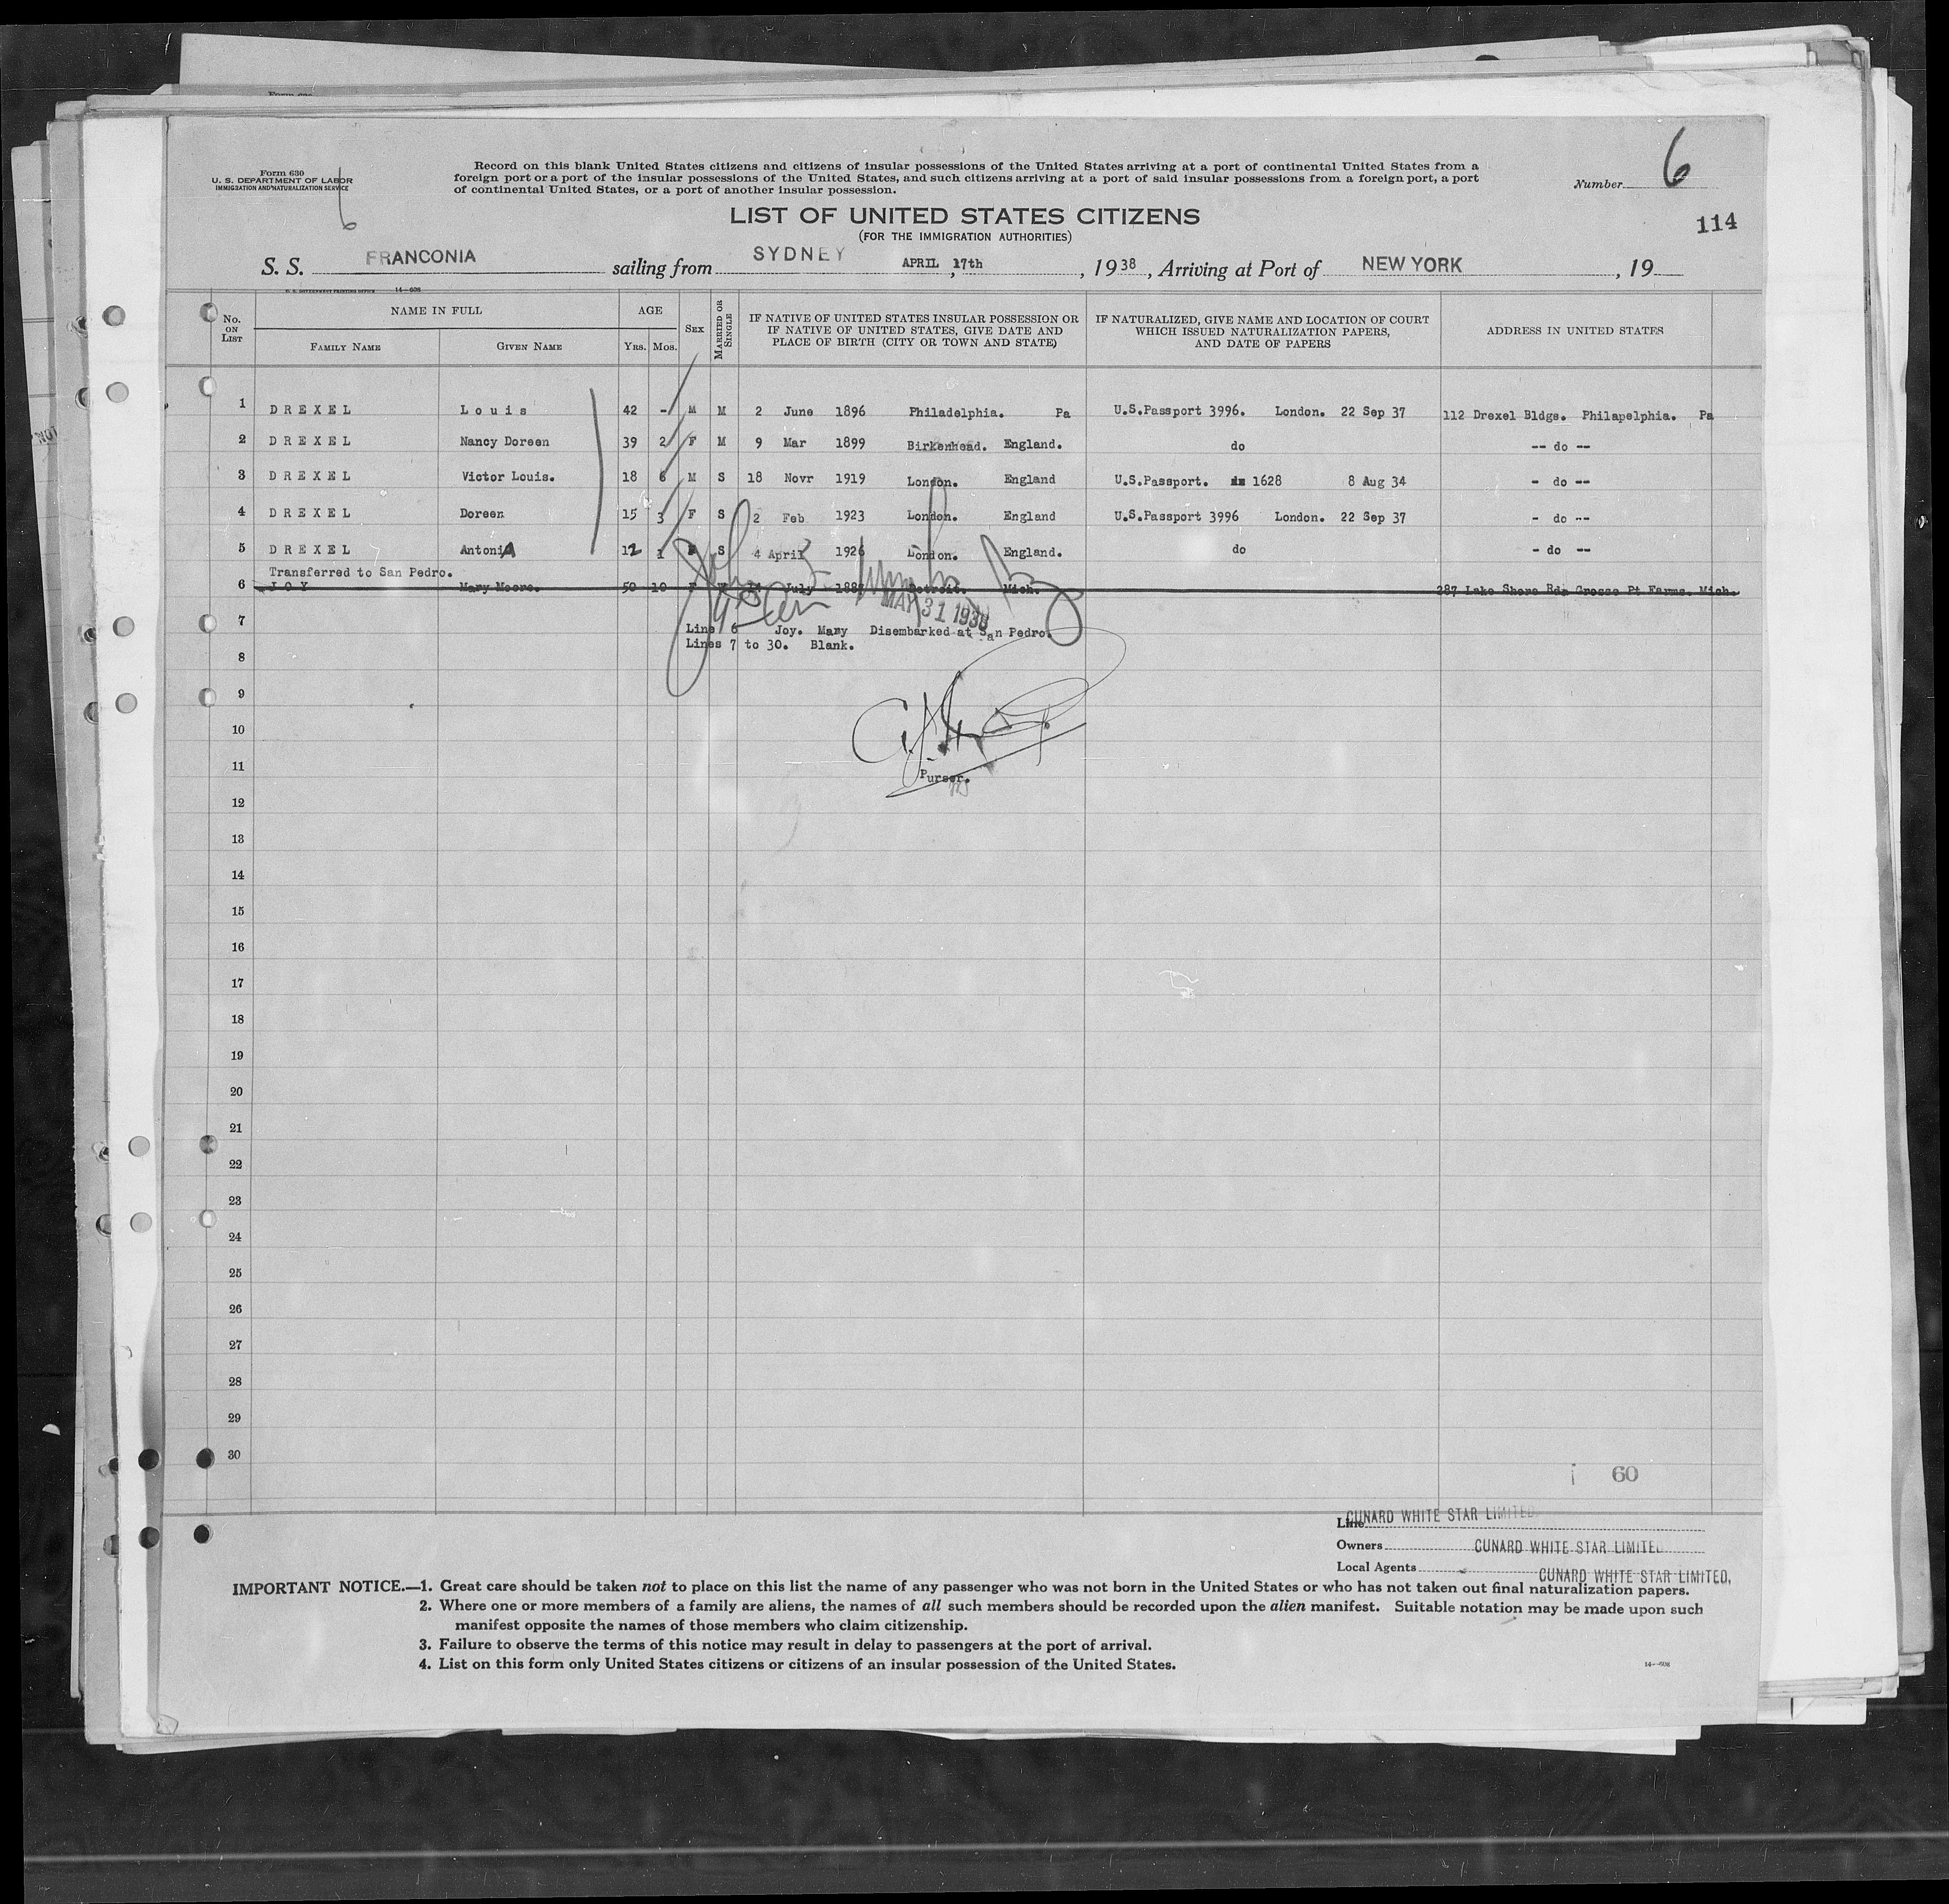 Form 630
U. S. DEPARTMENT OF LABOR
IMMIGRATION AND NATURALIZATION SERVICE
6
Record on this blank United States citizens and citizens of insular possessions of the United States arriving at a port of continental United States from a
foreign port or a port of the insular possessions of the United States, and such citizens arriving at a port of said insular possessions from a foreign port, a port
of continental United States, or a port of another insular possession.
Number 6
LIST OF UNITED STATES CITIZENS
(FOR THE IMMIGRATION AUTHORITIES)
114
S. S. FRANCONIA sailing from SYDNEY APRIL 17th, 1938, Arriving at Port of NEW YORK, 19
U. S. GOVERNMENT PRINTING OFFICE 14-608
No. ON LIST NAME IN FULL FAMILY NAME GIVEN NAME AGE YRS. MOS. SEX MARRIED OR SINGLE IF NATIVE OF UNITED STATES INSULAR POSSESSION OR IF NATIVE OF UNITED STATES, GIVE DATE AND PLACE OF BIRTH (CITY OR TOWN AND STATE) IF NATURALIZED, GIVE NAME AND LOCATION OF COURT WHICH ISSUED NATURALIZATION PAPERS, AND DATE OF PAPERS ADDRESS IN UNITED STATES
1 DREXEL Louis 42 - M M 2 June 1896 Philadelphia. Pa U.S.Passport 3996. London. 22 Sep 37 112 Drexel Bldgs. Philapelphia. Pa
2 DREXEL Nancy Doreen 39 2 F M 9 Mar 1899 Birkenhead. England. do -- do --
3 DREXEL Victor Louis. 18 6 M S 18 Novr 1919 London. England U.S.Passport. 1628 8 Aug 34 - do --
4 DREXEL Doreen 15 3 F S 2 Feb 1923 London. England U.S.Passport 3996 London. 22 Sep 37 - do --
5 DREXEL AntoniA 12 1 S 4 April 1926 London. England. do - do --
Transferred to San Pedro.
6 JOY Mary Moore. 50 10 F July Detroit. Mich. 287 Lake Shore Rd. Grosse Pt Farms. Mich.
MAY 31 1938
7 Line 6 Joy. Mary Disembarked at San Pedro.
Lines 7 to 30. Blank.
8
9
10
11 Purser.
12
13
14
15
16
17
18
19
20
21
22
23
24
25
26
27
28
29
30
60
Line CUNARD WHITE STAR LIMITED.
Owners CUNARD WHITE STAR LIMITED
Local Agents CUNARD WHITE STAR LIMITED,
IMPORTANT NOTICE.—1. Great care should be taken not to place on this list the name of any passenger who was not born in the United States or who has not taken out final naturalization papers.
2. Where one or more members of a family are aliens, the names of all such members should be recorded upon the alien manifest. Suitable notation may be made upon such
manifest opposite the names of those members who claim citizenship.
3. Failure to observe the terms of this notice may result in delay to passengers at the port of arrival.
4. List on this form only United States citizens or citizens of an insular possession of the United States.
14-608